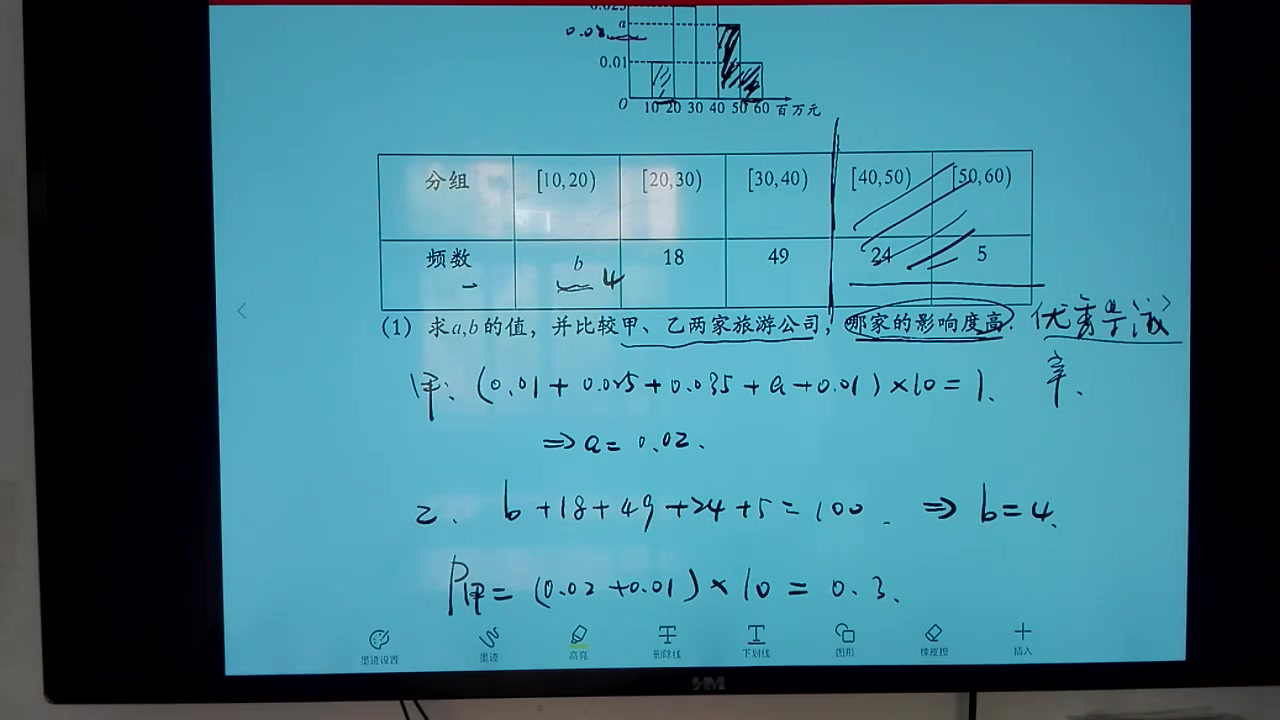 0.025
a
0.02
0.01
O 10 20 30 40 50 60 百万元
分组 [10,20) [20,30) [30,40) [40,50) [50,60)
频数 b 4 18 49 24 5
(1) 求a,b的值，并比较甲、乙两家旅游公司，哪家的影响度高. 优秀导游
率.
甲: (0.01+0.025+0.035+a+0.01)×10=1.
⇒a=0.02.
乙. b+18+49+24+5=100. ⇒ b=4.
P甲=(0.02+0.01)×10=0.3.
墨迹设置 墨迹 高亮 删除线 下划线 图形 橡皮擦 插入